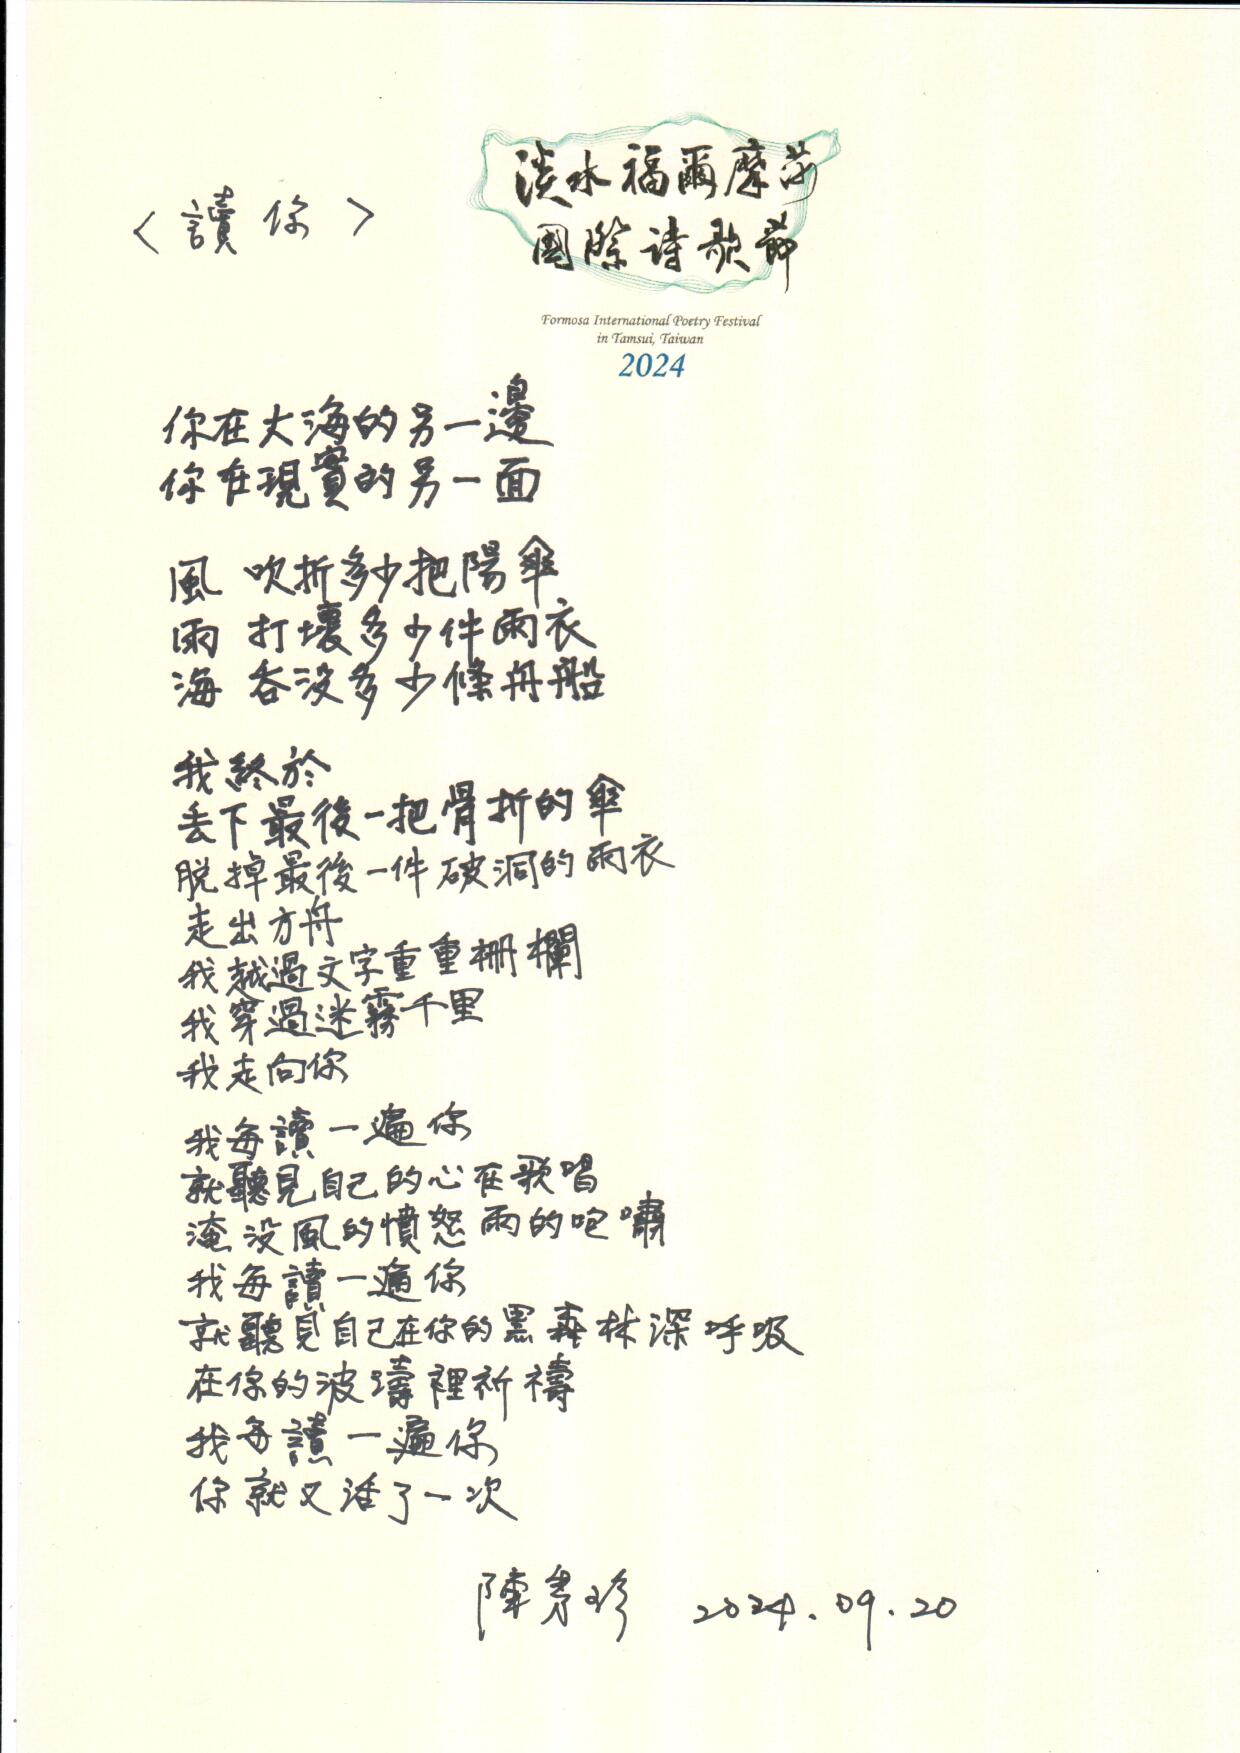 淡水福爾摩莎
國際詩歌節
Formosa International Poetry Festival
in Tamsui, Taiwan
2024
〈讀你〉
你在大海的另一邊
你在現實的另一面
風 吹折多少把陽傘
雨 打壞多少件雨衣
海 吞沒多少條舟船
我終於
丟下最後一把骨折的傘
脫掉最後一件破洞的雨衣
走出方舟
我越過文字重重柵欄
我穿過迷霧千里
我走向你
我每讀一遍你
就聽見自己的心在歌唱
淹沒風的憤怒雨的咆嘯
我每讀一遍你
就聽見自己在你的黑森林深呼吸
在你的波濤裡祈禱
我每讀一遍你
你就又活了一次
陳秀珍 2024.09.20